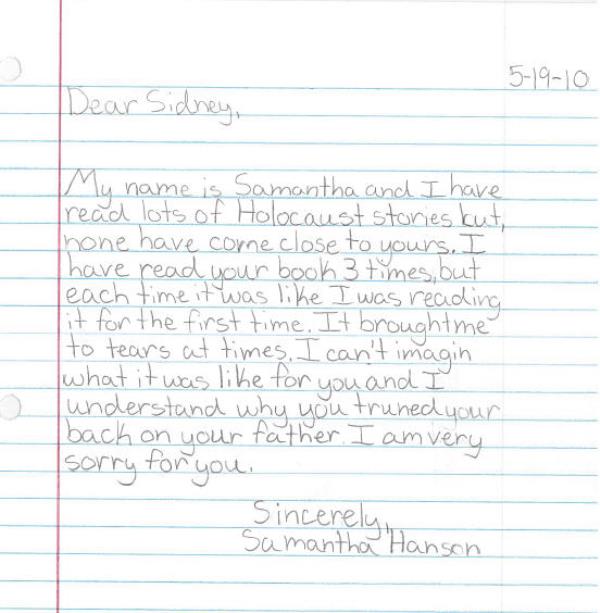 5-19-10
Dear Sidney,
My name is Samantha and I have
read lots of Holocaust stories but,
none have come close to yours. I
have read your book 3 times, but
each time it was like I was reading
it for the first time. It brought me
to tears at times. I can't imagin
what it was like for you and I
understand why you truned your
back on your father. I am very
sorry for you.
Sincerely,
Samantha Hanson